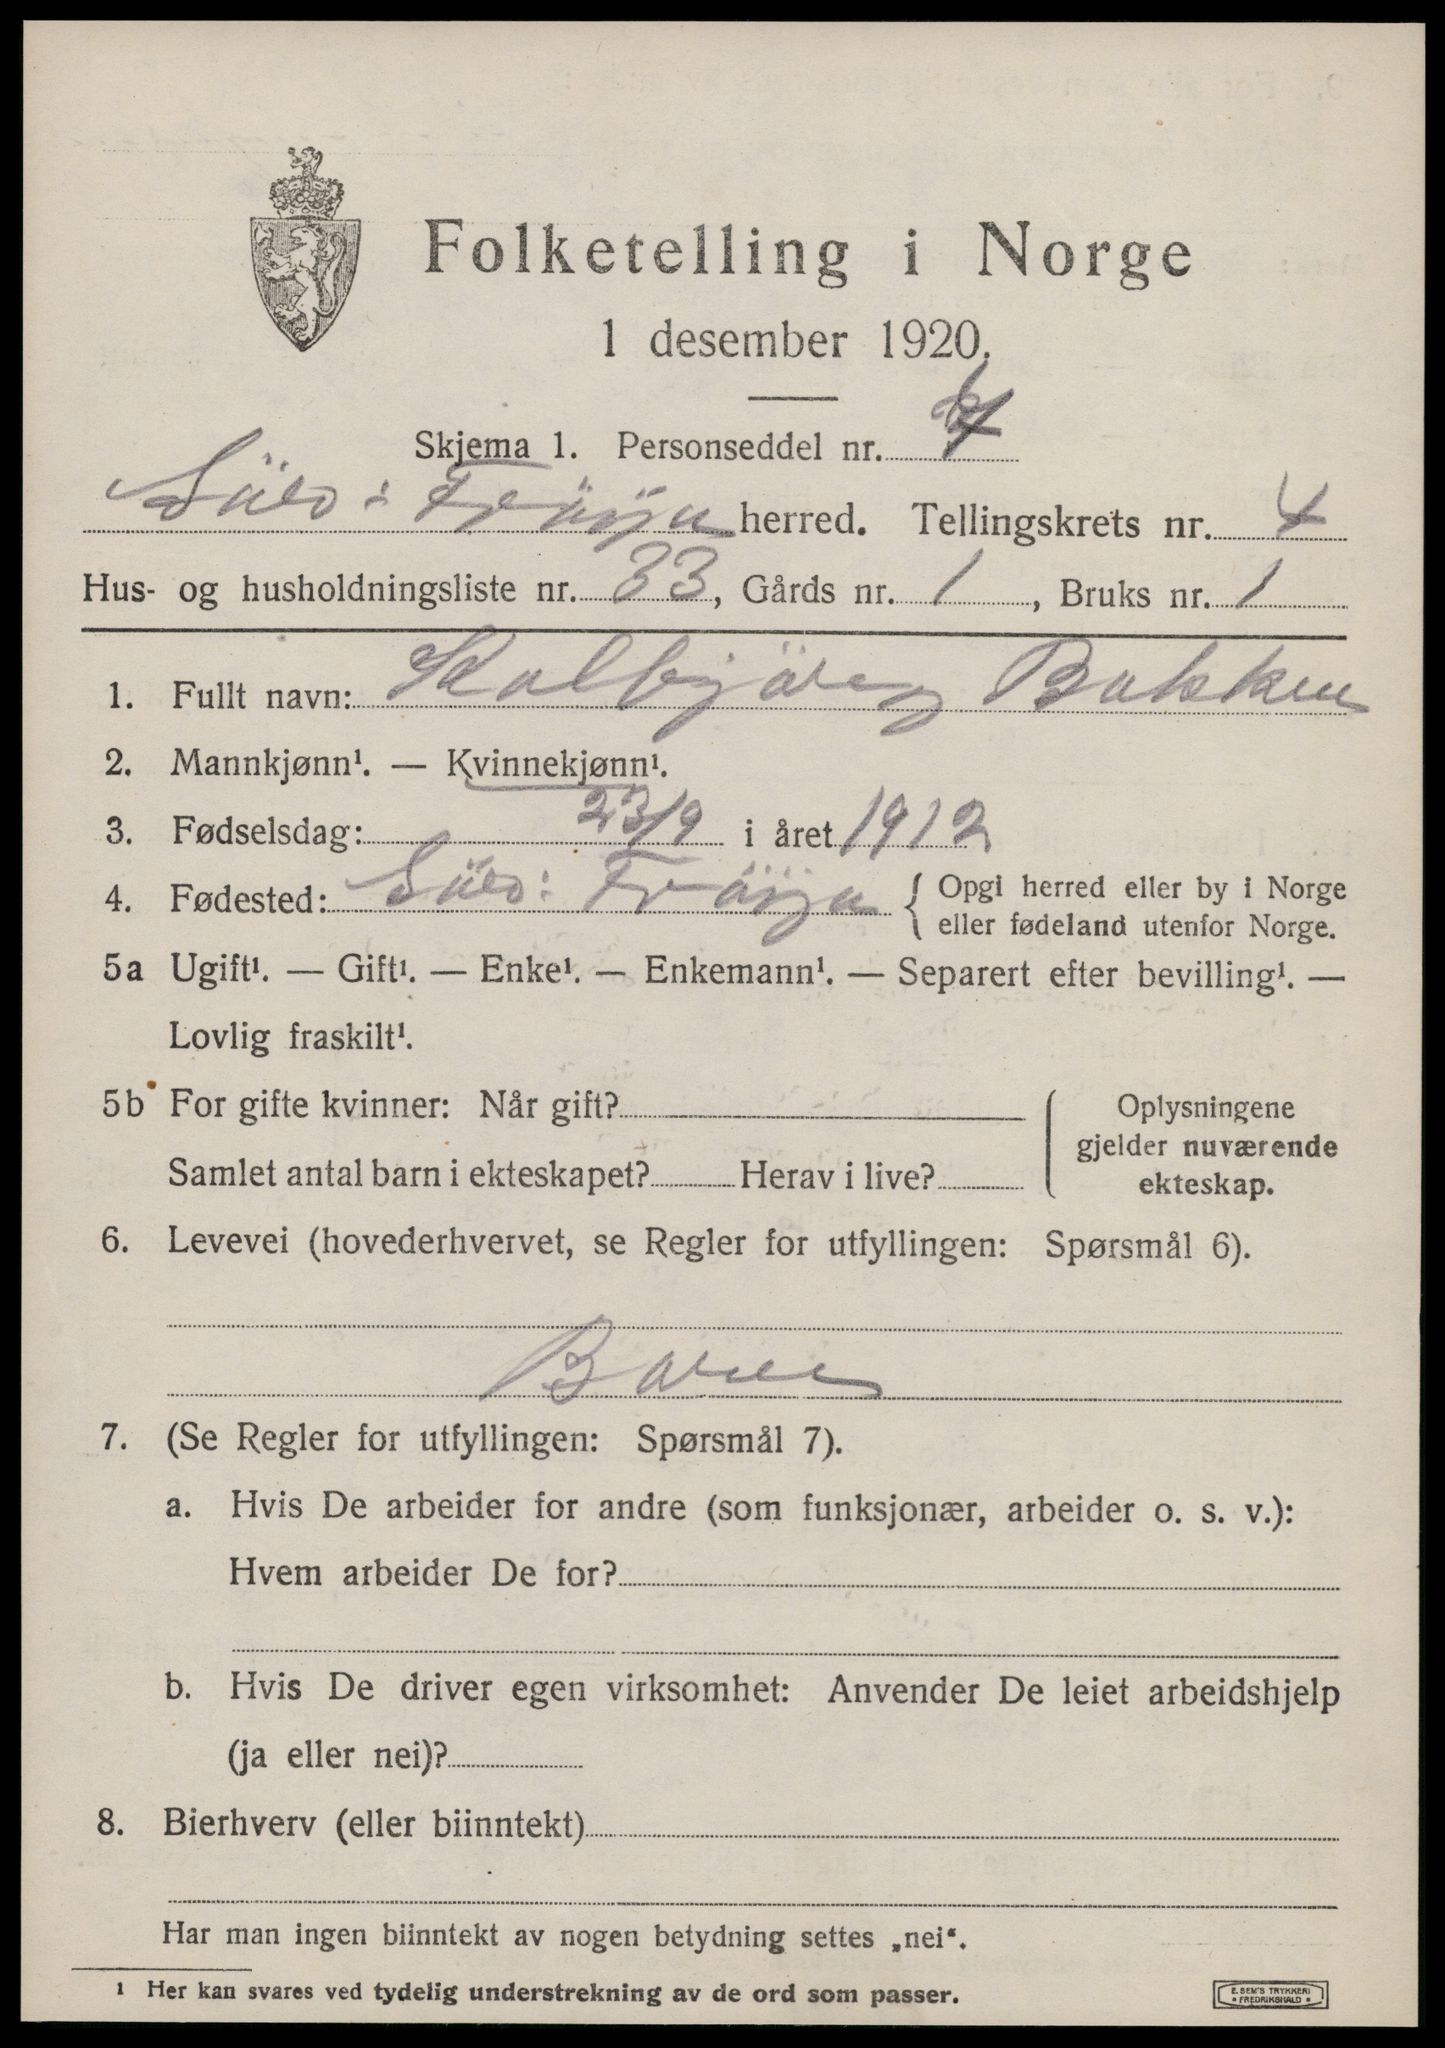 Folketelling i Norge
1 desember 1920.
Skjema 1. Personseddel nr. 4
Süd: Fröya herred. Tellingskrets nr. 4
Hus- og husholdningsliste nr. 33, Gårds nr. 1, Bruks nr. 1
1. Fullt navn: Kolbjörg Bakken
2. Mannkjønn¹. — Kvinnekjønn¹.
3. Fødselsdag: 23/9 i året 1912
4. Fødested: Süd: Fröya { Opgi herred eller by i Norge
eller fødeland utenfor Norge.
5a Ugift¹. — Gift¹. — Enke¹. — Enkemann¹. — Separert efter bevilling¹. —
Lovlig fraskilt¹.
5b For gifte kvinner: Når gift?
Samlet antal barn i ekteskapet? Herav i live?
Oplysningene
gjelder nuværende
ekteskap.
6. Levevei (hovederhvervet, se Regler for utfyllingen: Spørsmål 6).
Barn
7. (Se Regler for utfyllingen: Spørsmål 7).
a. Hvis De arbeider for andre (som funksjonær, arbeider o. s. v.):
Hvem arbeider De for?
b. Hvis De driver egen virksomhet: Anvender De leiet arbeidshjelp
(ja eller nei)?
8. Bierhverv (eller biinntekt)
Har man ingen biinntekt av nogen betydning settes „nei“.
¹ Her kan svares ved tydelig understrekning av de ord som passer.
E. SEM'S TRYKKERI
• FREDRIKSHALD •